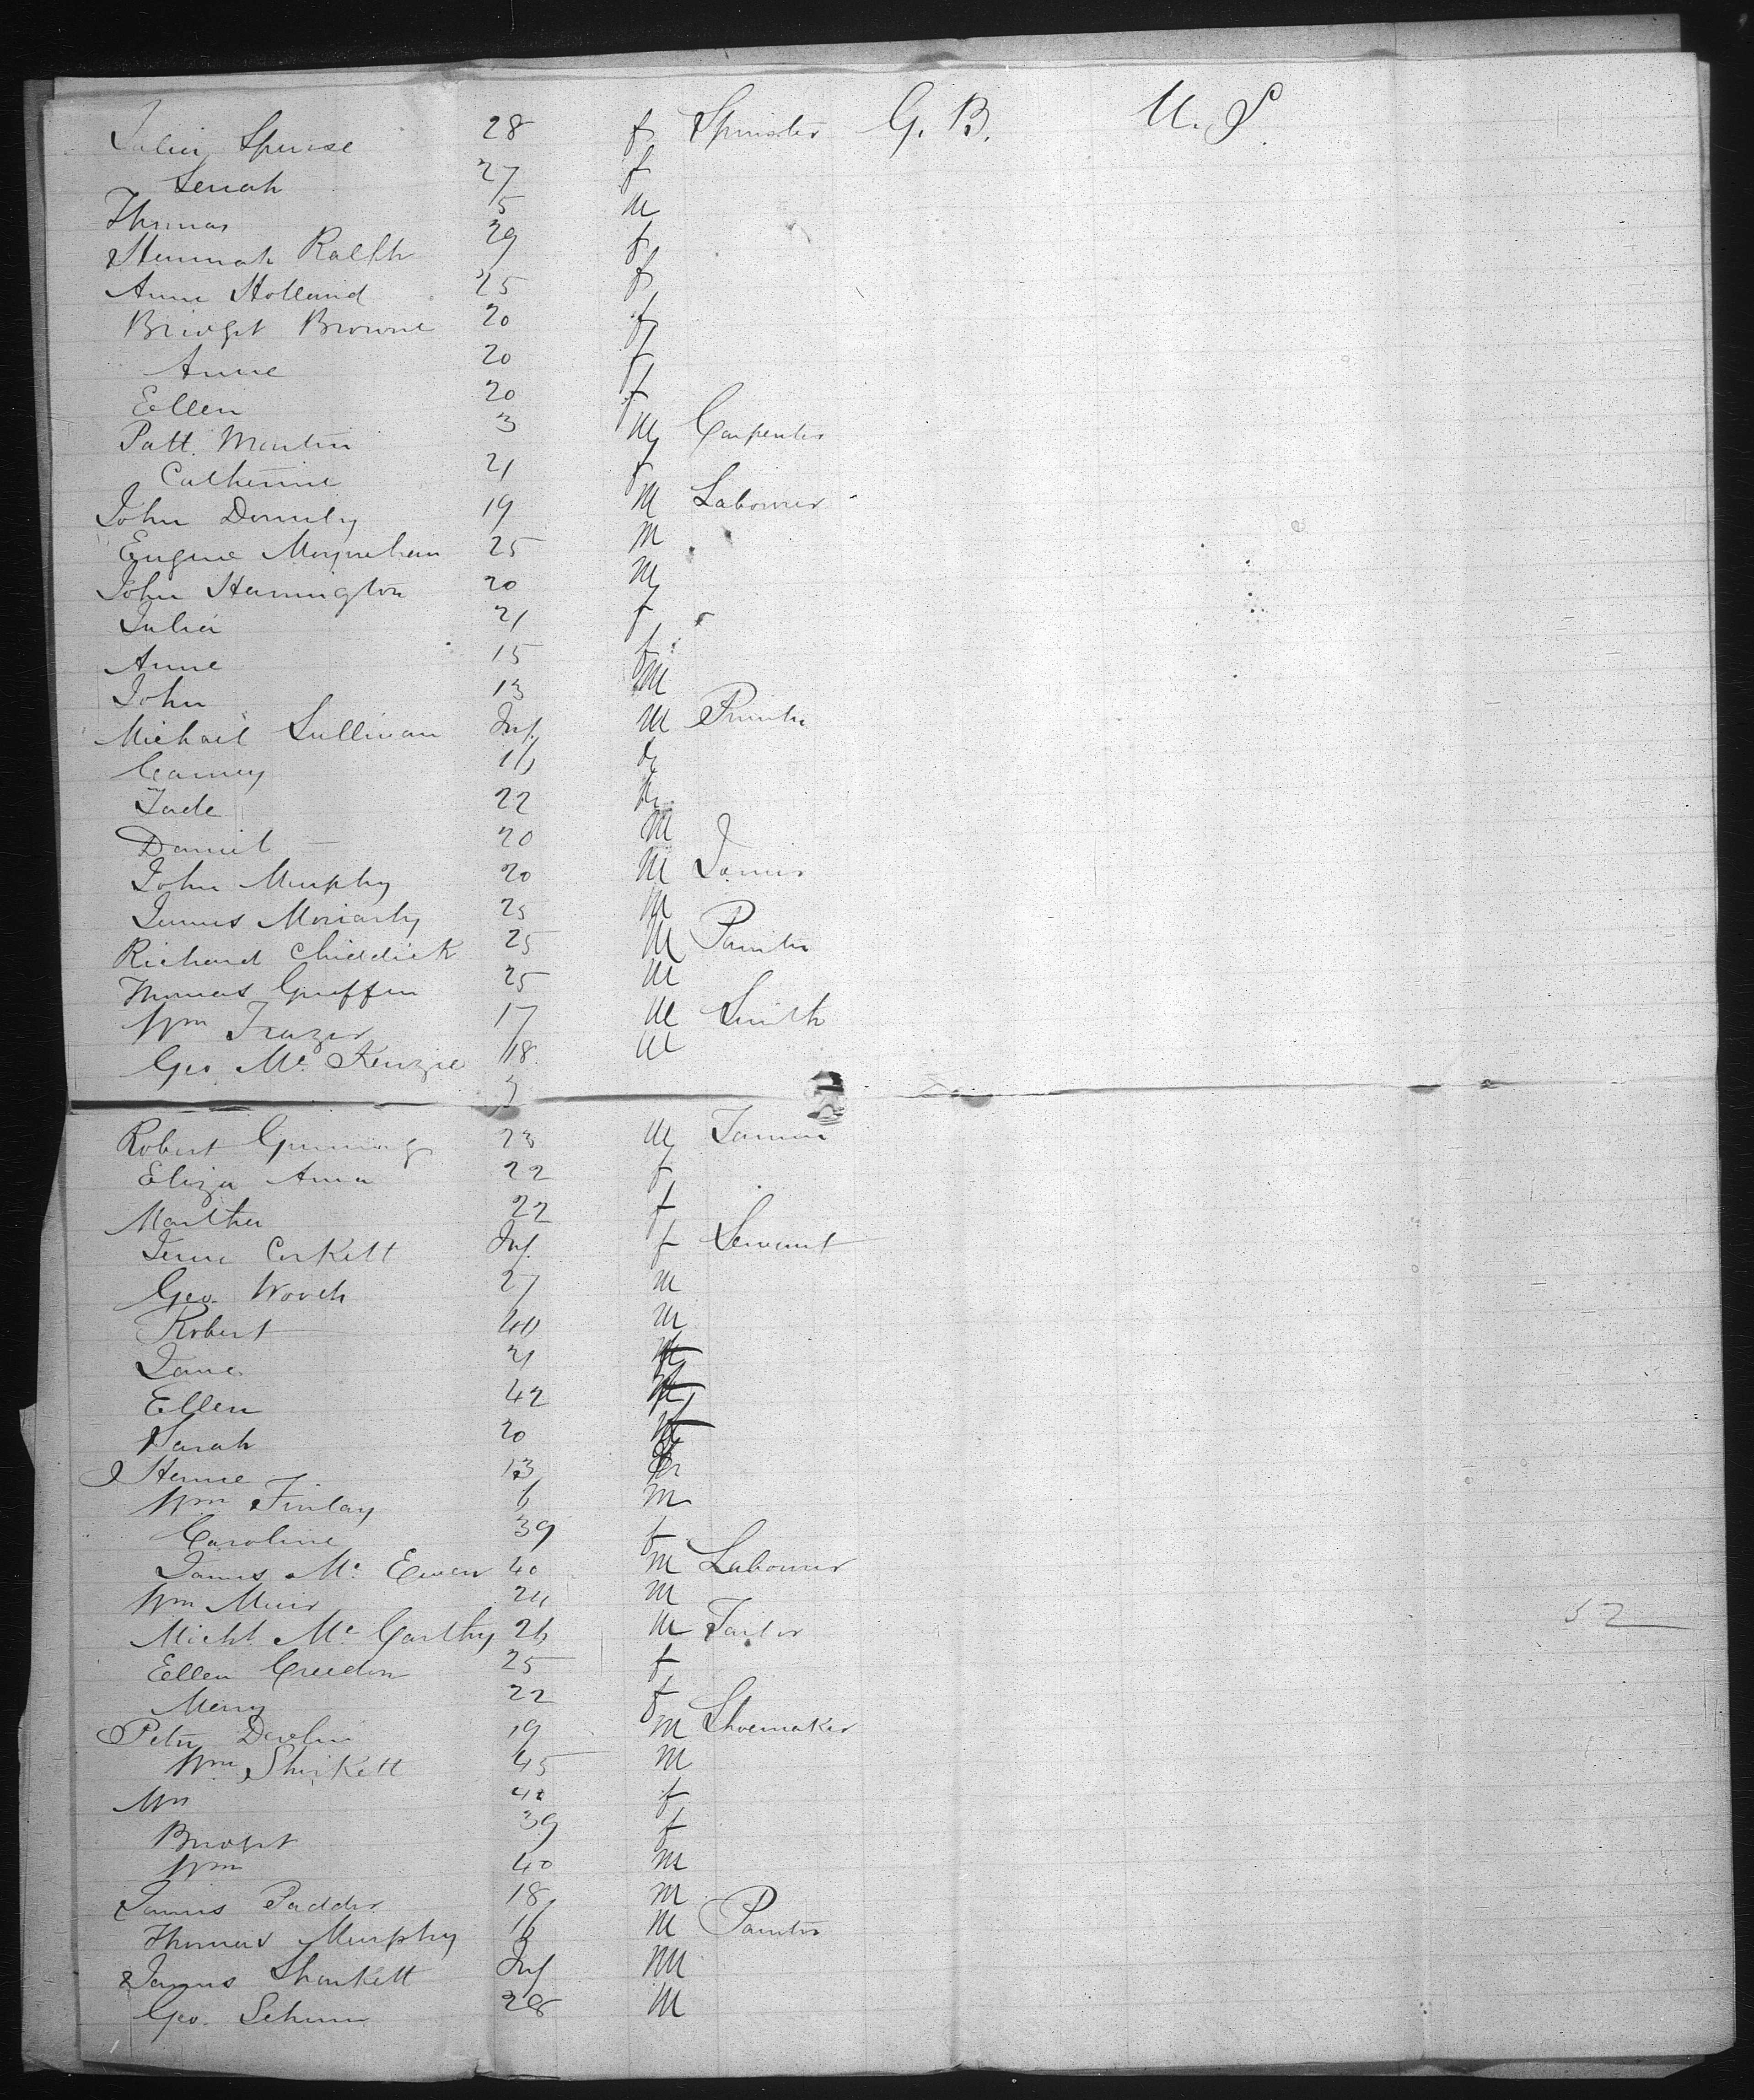 Julia Spruse 28 f Spinster G. B. U. S.
Senah 27 f
Thomas 5 m
Hannah Ralph 29 f
Anne Holland 25 f
Bridget Browne 20 f
Anne 20 f
Ellen 20 f
Patt. Martin 3 m Carpenter
Catherine 21 f
John Donnely 19 m Labourer
Eugene Moynehan 25 m
John Harrington 20 m
Julia 21 f
Anne 15 f
John 13 m
Michael Sullivan Inf. m Printer
16
Jade 22
Daniel 20 m
John Murphy 20 m
James Moriarty 25 m
Richard Chiddick 25 m Painter
Thomas Griffin 25 m
Wm Frazer 17 m Smith
Geo Mc. Kenzie 18 m
3
Robert Gunning 23 m
Eliza Anna 22 f
Martha 22 f
Jane Corkett Inf. f Servant
Geo. Wooch 27 m
Robert 40 m
Jane 21
Ellen 42
Sarah 20
13
Wm Finlay 6 m
Caroline 39 f
James Mc. Ewen 40 m Labourer
Wm Muir 24 m
Michl. Mc. Carthy 26 m Tailor 52
Ellen Creedon 25 f
Mary 22 f
Peter Devlin 19 m Shoemaker
Wm Shirkett 45 m
f
Bridget 39 f
Wm 40 m
James Padder 18 m
Thomas Murphy 16 m Painter
James Sharkett Inf m
Geo. 28 m